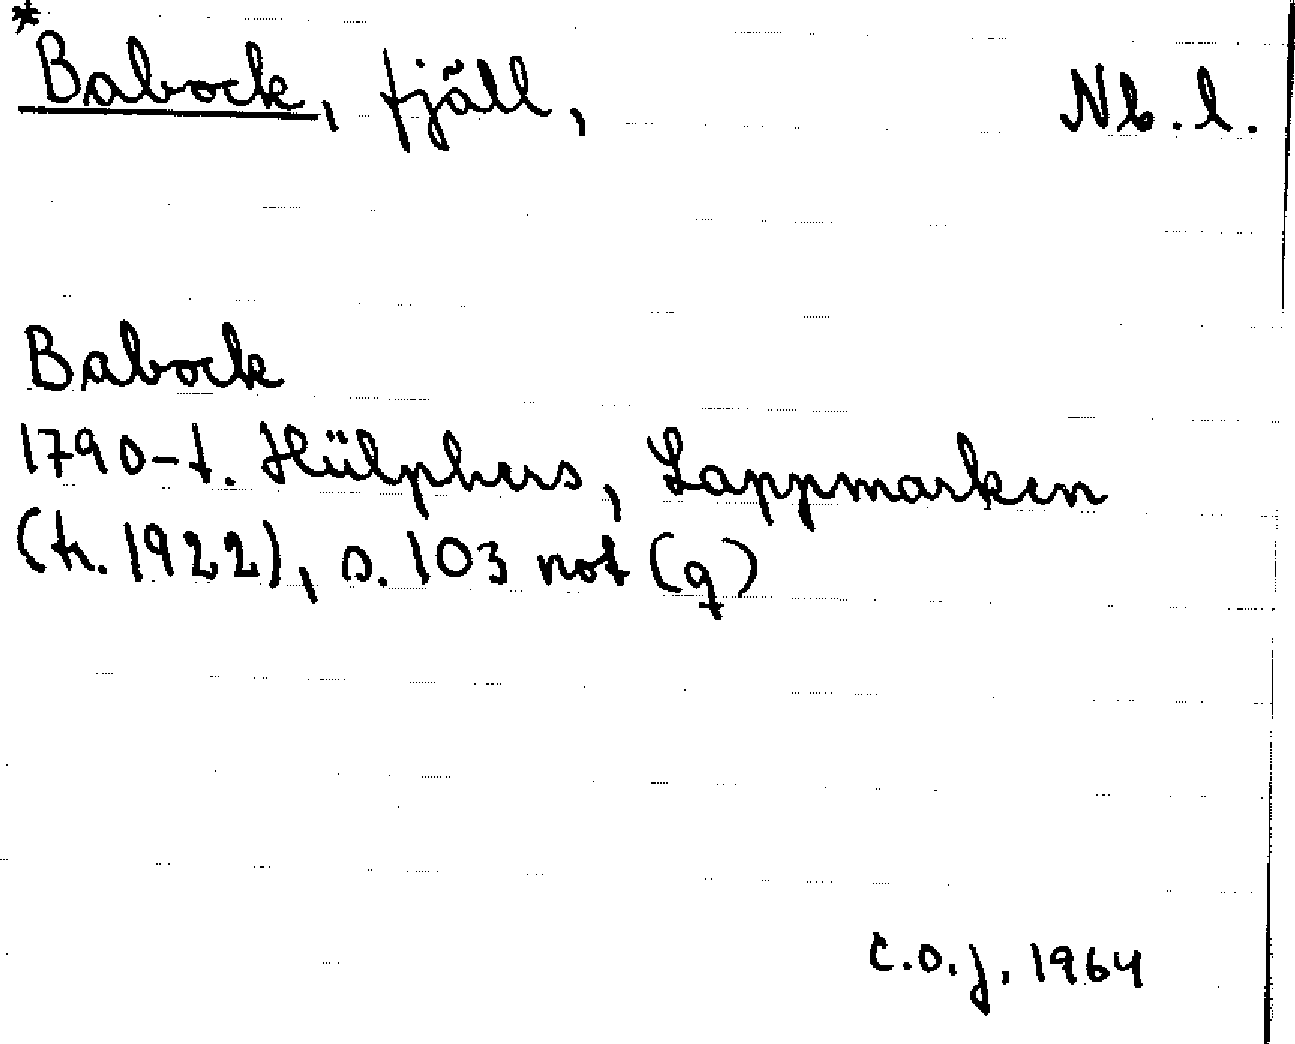 *Babock, fjäll, Nb. l.
Babock
1790-t. Hülphers, Lappmarken
(tr. 1922), s. 103 not (q)
C.O.J. 1964